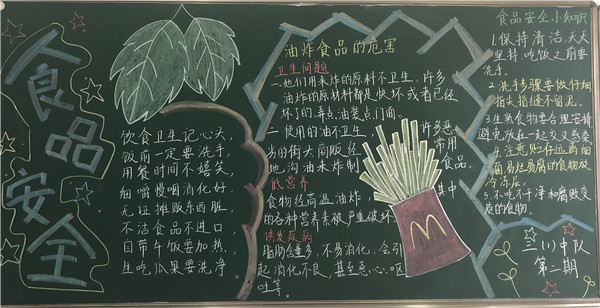 食品安全
饮食卫生记心头，
饭前一定要洗手，
用餐时间不嬉笑，
细嚼慢咽消化好，
无证摊贩东西脏，
不洁食品不进口，
自带午饭要加热，
生吃瓜果要洗净。
油炸食品的危害
卫生问题
一、他们用来炸的原料不卫生，许多
油炸的原材料都是快坏或者已经
坏了的弄点油装点门面。
二、使用的油不卫生，许多恶
劣的街头商贩经常用
地沟油来炸制食品
低营养
食物经高温油炸，其中
的各种营养素被严重破坏
诱发疾病
脂肪含量多，不易消化，会引
起消化不良，甚至恶心、呕
吐等。
M
食品安全小知识
1.保持清洁，天天
坚持吃饭之前要
洗手。
2.洗手步骤要做仔细
指尖指缝不留泥。
3.生熟食物要合理安排
避免放在一起交叉感染
4.注意贮存远离细
菌，易生易腐的食物放
冷冻层。
5.不吃不干净和腐败变
质的食物。
三（1）中队
第二期